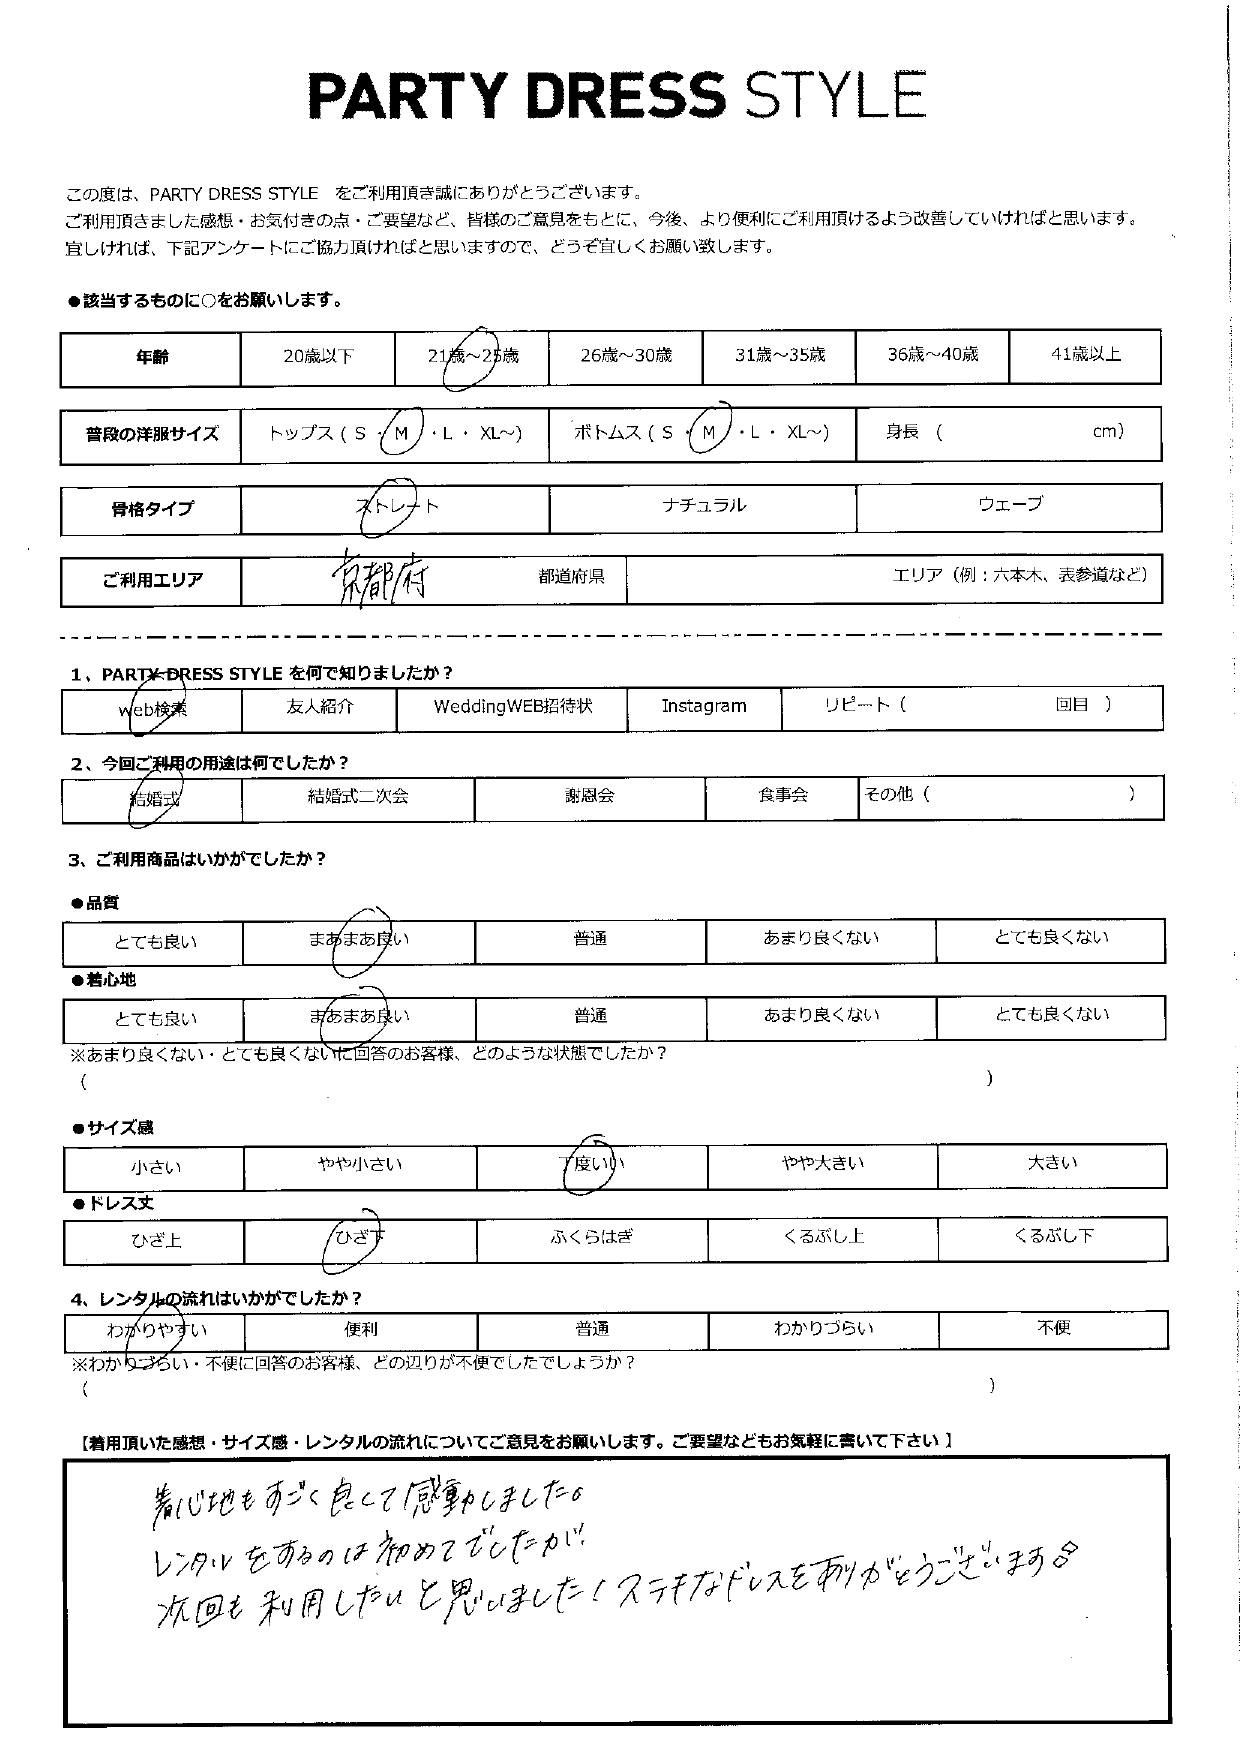 PARTY DRESS STYLE
この度は、PARTY DRESS STYLE をご利用頂き誠にありがとうございます。
ご利用頂きました感想・お気付きの点・ご要望など、皆様のご意見をもとに、今後、より便利にご利用頂けるよう改善していければと思います。
宜しければ、下記アンケートにご協力頂ければと思いますので、どうぞ宜しくお願い致します。
●該当するものに○をお願いします。
年齢 20歳以下 21歳～25歳 26歳～30歳 31歳～35歳 36歳～40歳 41歳以上
普段の洋服サイズ トップス ( S ・ M ・ L ・ XL～) ボトムス ( S ・ M ・ L ・ XL～) 身長 ( cm)
骨格タイプ ストレート ナチュラル ウェーブ
ご利用エリア 京都府 都道府県 エリア（例：六本木、表参道など）
1、PARTY DRESS STYLE を何で知りましたか？
web検索 友人紹介 WeddingWEB招待状 Instagram リピート（ 回目 ）
2、今回ご利用の用途は何でしたか？
結婚式 結婚式二次会 謝恩会 食事会 その他（ ）
3、ご利用商品はいかがでしたか？
●品質
とても良い まあまあ良い 普通 あまり良くない とても良くない
●着心地
とても良い まあまあ良い 普通 あまり良くない とても良くない
※あまり良くない・とても良くないに回答のお客様、どのような状態でしたか？
( )
●サイズ感
小さい やや小さい 丁度いい やや大きい 大きい
●ドレス丈
ひざ上 ひざ下 ふくらはぎ くるぶし上 くるぶし下
4、レンタルの流れはいかがでしたか？
わかりやすい 便利 普通 わかりづらい 不便
※わかりづらい・不便に回答のお客様、どの辺りが不便でしたでしょうか？
( )
【着用頂いた感想・サイズ感・レンタルの流れについてご意見をお願いします。ご要望などもお気軽に書いて下さい】
着心地もすごく良くて感動しました。
レンタルをするのは初めてでしたが、
次回も利用したいと思いました！ステキなドレスをありがとうございます